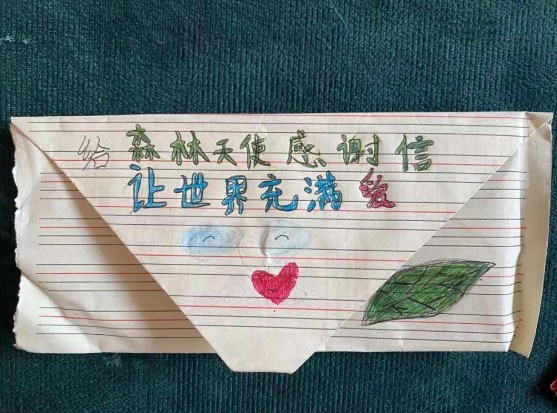 给森林天使感谢信
让世界充满爱